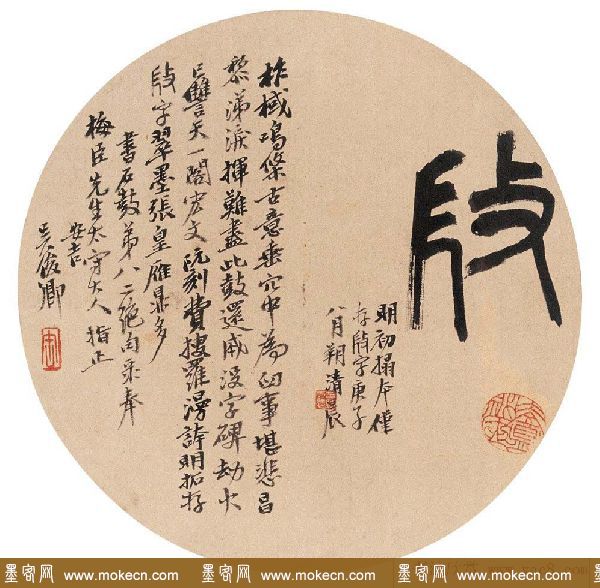 明初搨本僅
存字庚子
八月翔清晨
柞棫鳴條古意垂穴中為臼事堪悲昌
黎涕淚揮難盡此鼓還成沒字碑劫火
已讐天一閣宏文阮刻費搜羅漫誇明拓存
字翠墨張皇雁鼎多
書石鼓弟八二絕句录奉
梅臣先生太守大人指正
安吉
吳俊卿
墨客网 www.mokecn.com 墨客网 www.mokecn.com 墨客网 www.mokecn.com 墨客网